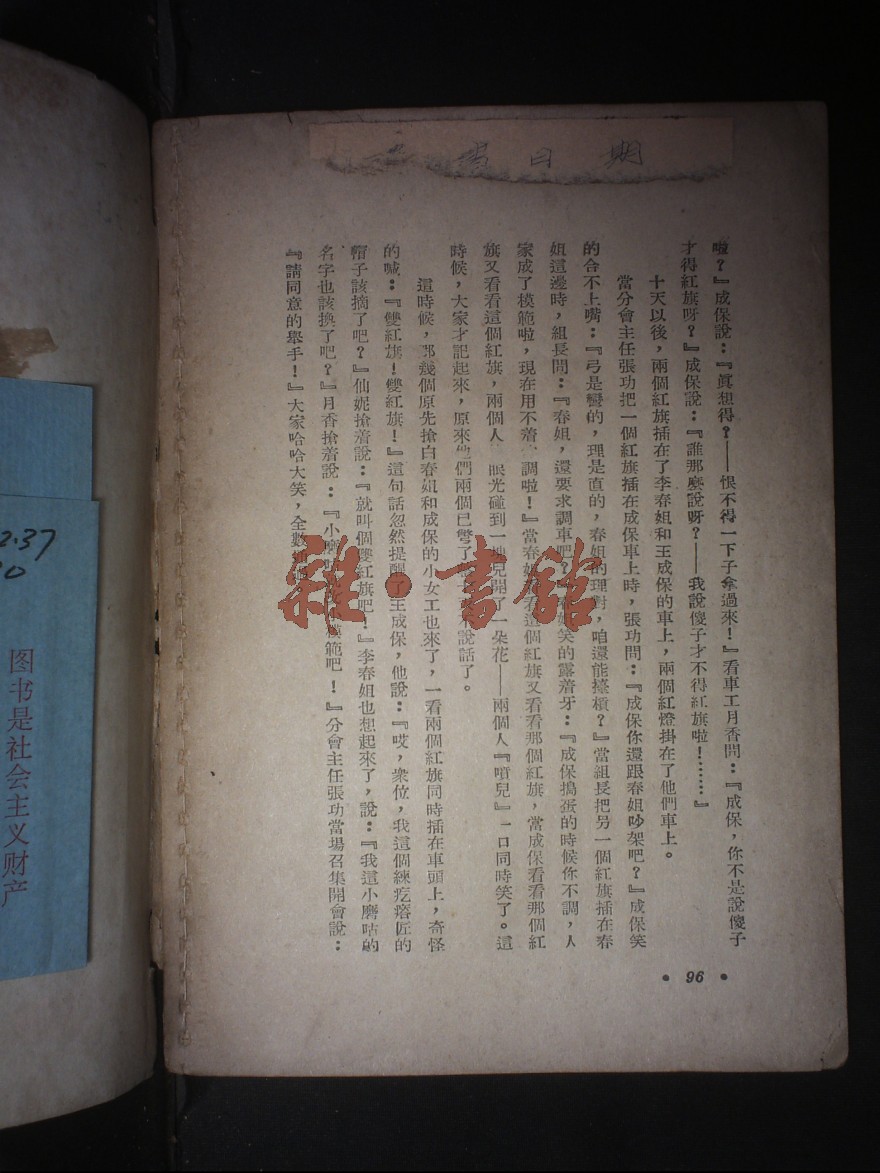 書日期
啦？』成保說：『眞想得？——恨不得一下子拿過來！』看車工月香問：『成保，你不是說傻子
才得紅旗呀？』成保說：『誰那麼說呀？——我說傻子才不得紅旗啦！………』
十天以後，兩個紅旗插在了李春姐和王成保的車上，兩個紅燈掛在了他們車上。
當分會主任張功把一個紅旗插在成保車上時，張功問：『成保你還跟春姐吵架吧？』成保笑
的合不上嘴：『弓是彎的，理是直的，春姐的理對，咱還能擡槓？』當組長把另一個紅旗插在春
姐這邊時，組長問：『春姐，還要求調車吧？』笑的露着牙：『成保搗蛋的時候你不調，人
家成了模範啦，現在用不着調啦！』當春看這個紅旗又看看那個紅旗，當成保看看那個紅
旗又看看這個紅旗，兩個人眼光碰到一塊兒開了一朵花——兩個人『噴兒』一口同時笑了。這
時候，大家才記起來，原來他們兩個已彆了說話了。
這時候，那幾個原先搶白春姐和成保的小女工也來了，一看兩個紅旗同時插在車頭上，奇怪
的喊：『雙紅旗！雙紅旗！』這句話忽然提醒了王成保，他說：『哎，衆位，我這個練疙瘩匠的
帽子該摘了吧？』仙妮搶着說：『就叫個雙紅旗吧！』李春姐也想起來了，說：『我這小蘑咕的
名字也該換了吧？』月香搶着說：『小模範吧！』分會主任張功當場召集開會說：
『請同意的舉手！』大家哈哈大笑，全數
• 96 •
雜·書館
2.37
图书是社会主义财产